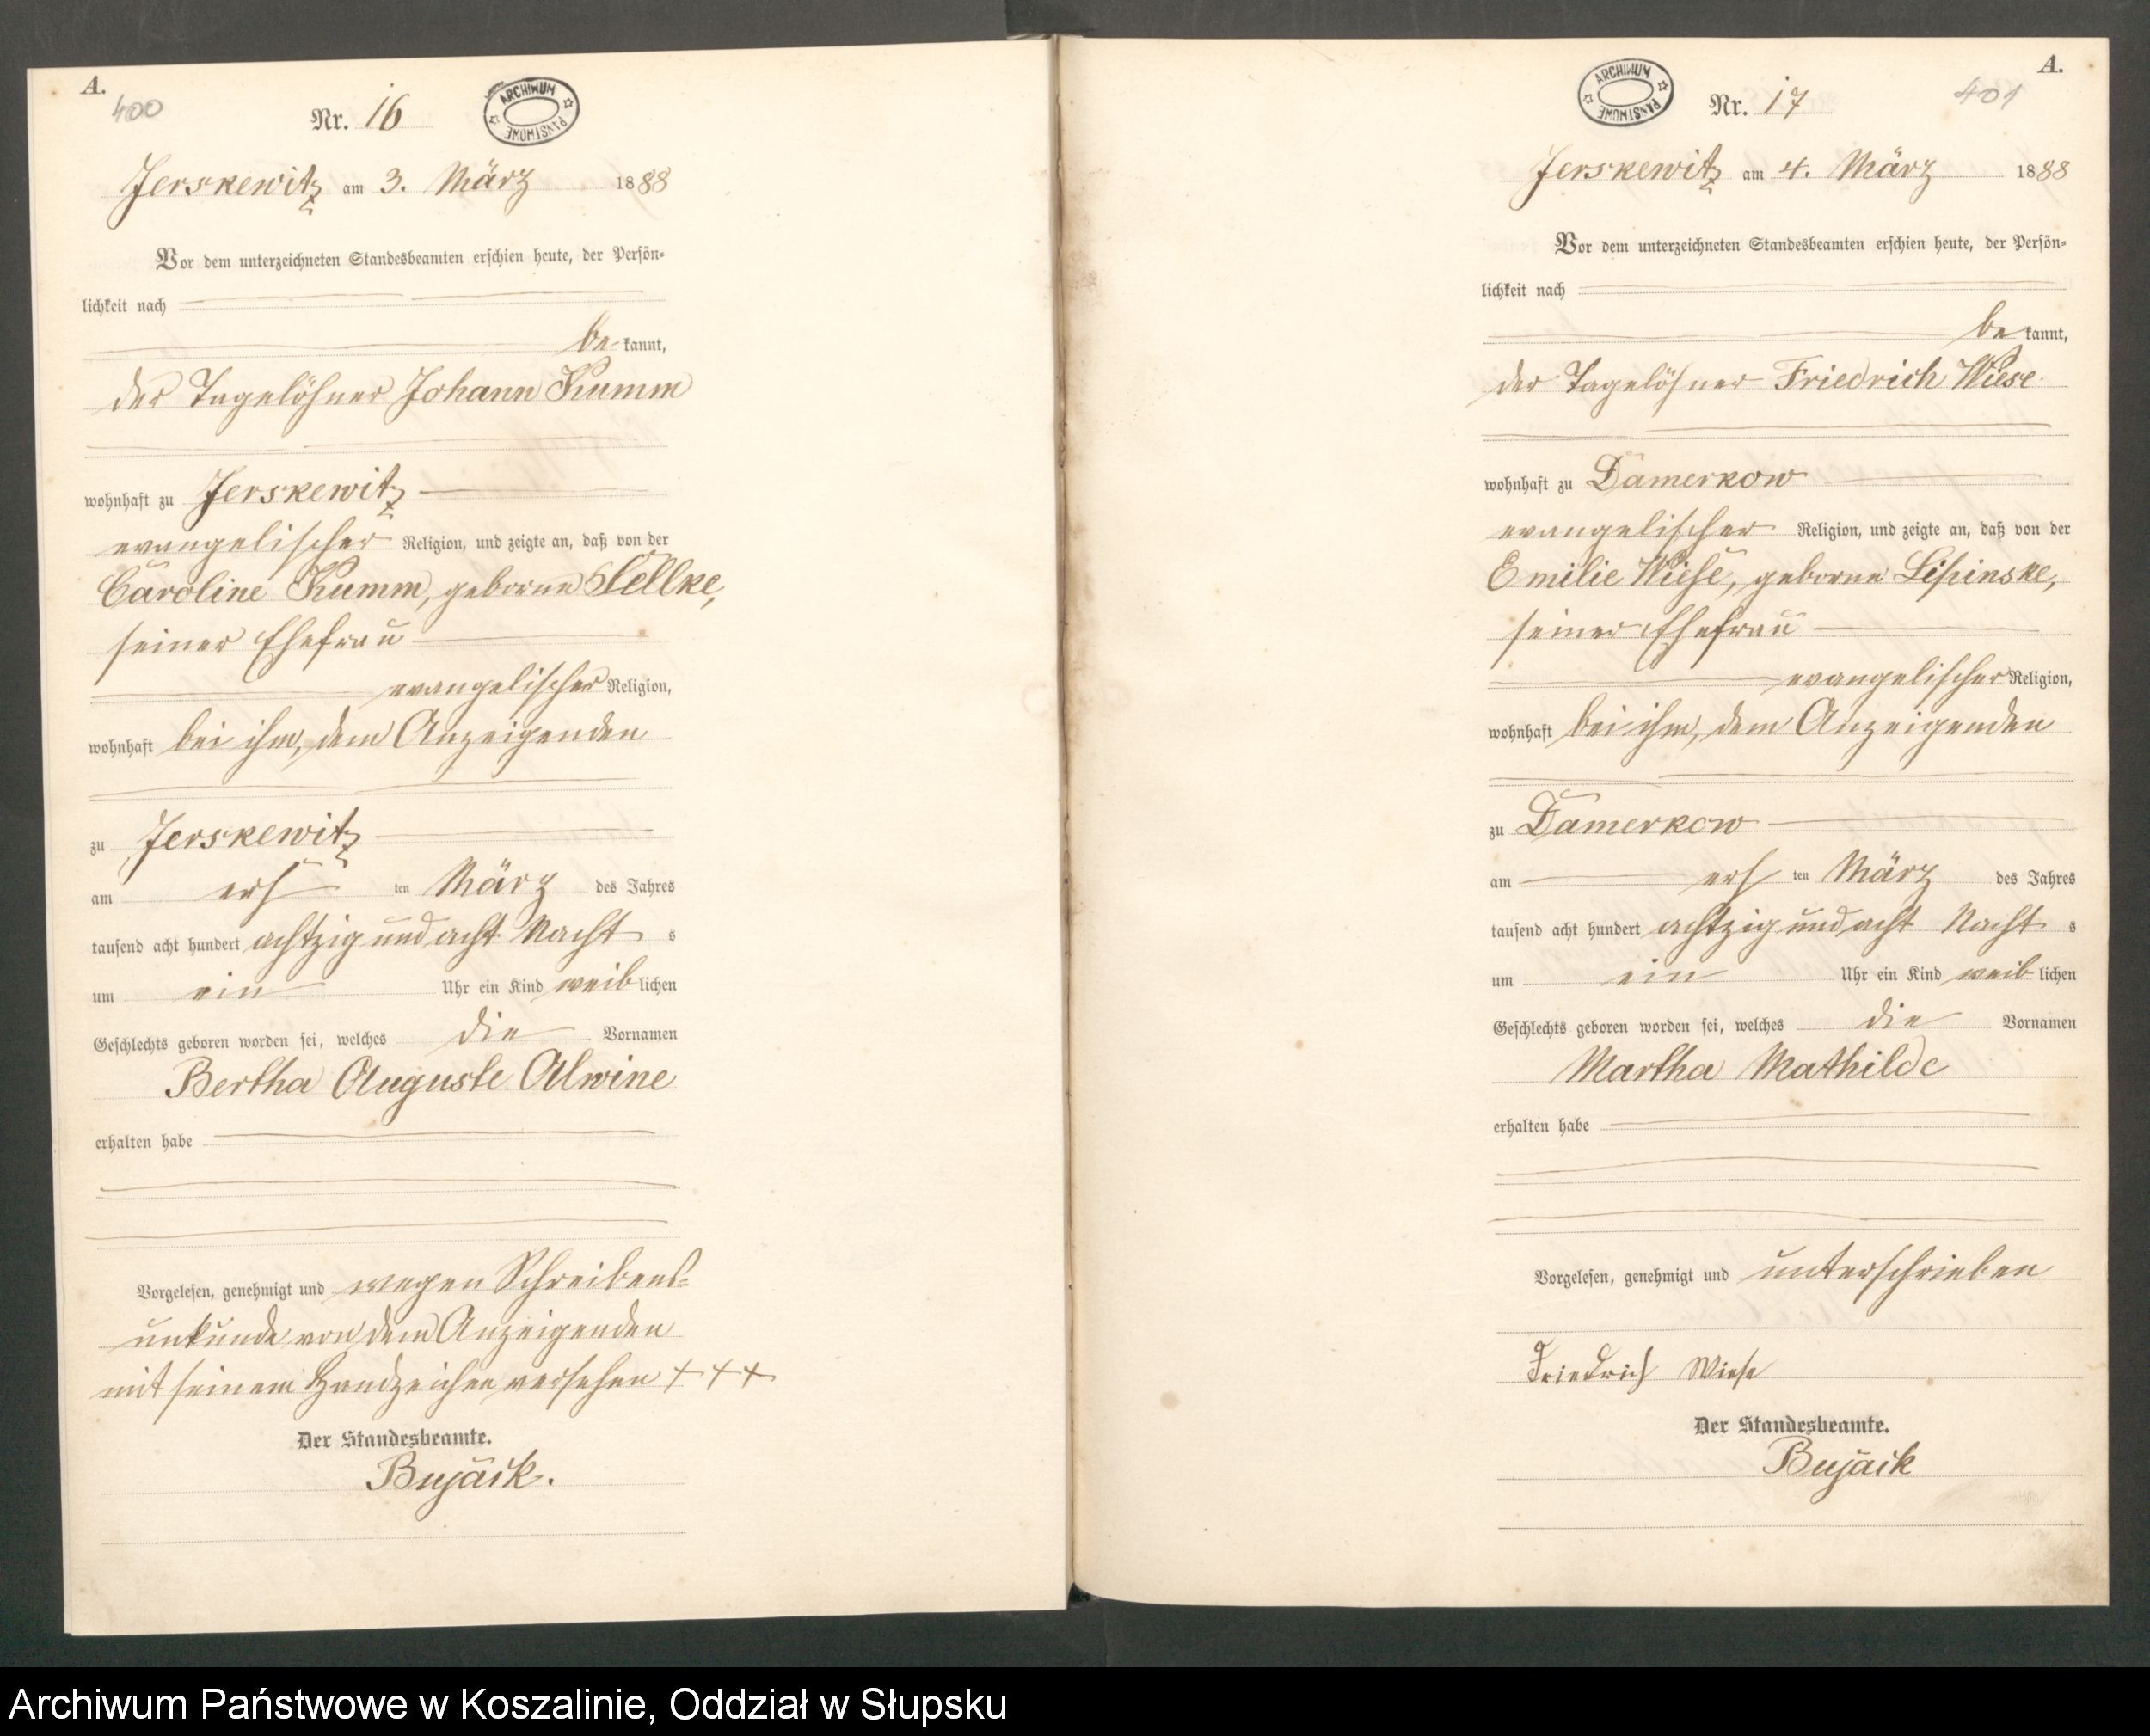 A.
400
Nr. 16
ARCHIWUM PAŃSTWOWE
Jerskewitz am 3. März 1888
Vor dem unterzeichneten Standesbeamten erschien heute, der Persön-
lichkeit nach
be kannt,
der Tagelöhner Johann Kumm
wohnhaft zu Jerskewitz
evangelischer Religion, und zeigte an, daß von der
Caroline Kumm, geborne Sellke,
seiner Ehefrau
evangelischer Religion,
wohnhaft bei ihm, dem Anzeigenden
zu Jerskewitz
am ers ten März des Jahres
tausend acht hundert achtzig und acht Nacht s
um ein Uhr ein Kind weib lichen
Geschlechts geboren worden sei, welches die Vornamen
Bertha Auguste Alwine
erhalten habe
Vorgelesen, genehmigt und wegen Schreibens-
unkunde von dem Anzeigenden
mit seinem Handzeichen versehen +++
Der Standesbeamte.
Bujack.
A.
401
Nr. 17
ARCHIWUM PAŃSTWOWE
Jerskewitz am 4. März 1888
Vor dem unterzeichneten Standesbeamten erschien heute, der Persön-
lichkeit nach
be kannt,
der Tagelöhner Friedrich Wiese
wohnhaft zu Damerkow
evangelischer Religion, und zeigte an, daß von der
Emilie Wiese, geborne Lipinske,
seiner Ehefrau
evangelischer Religion,
wohnhaft bei ihm, dem Anzeigenden
zu Damerkow
am ers ten März des Jahres
tausend acht hundert achtzig und acht Nacht s
um ein Uhr ein Kind weib lichen
Geschlechts geboren worden sei, welches die Vornamen
Martha Mathilde
erhalten habe
Vorgelesen, genehmigt und unterschrieben
Friedrich Wiese
Der Standesbeamte.
Bujack
Archiwum Państwowe w Koszalinie, Oddział w Słupsku